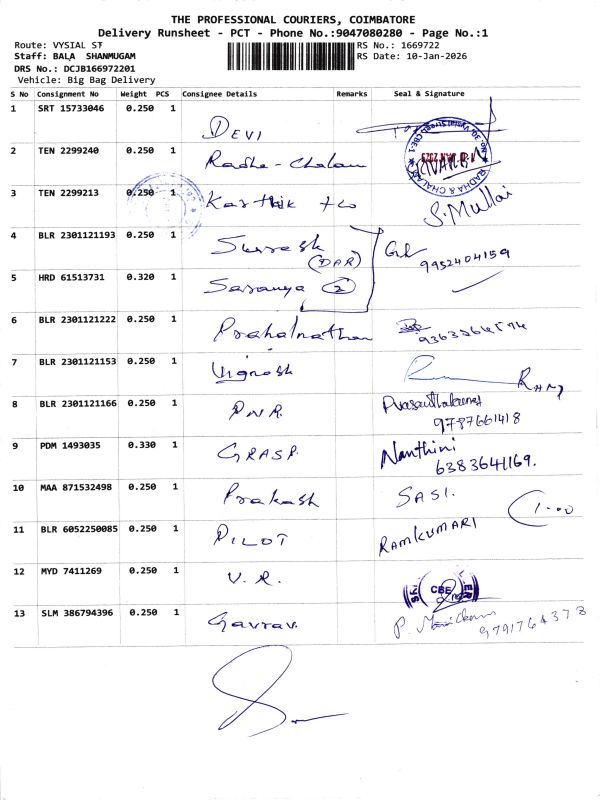 THE PROFESSIONAL COURIERS, COIMBATORE
Delivery Runsheet - PCT - Phone No.:9047080280 - Page No.:1
Route: VYSIAL ST RS No.: 1669722
Staff: BALA SHANMUGAM RS Date: 10-Jan-2026
DRS No.: DCJB166972201
Vehicle: Big Bag Delivery
S No Consignment No Weight PCS Consignee Details Remarks Seal & Signature
1 SRT 15733046 0.250 1 DEVI
2 TEN 2299240 0.250 1 Radha-Chalam
3 TEN 2299213 0.250 1 Karthik S.Mullai
4 BLR 2301121193 0.250 1 Suresh
(DAR) 9952404159
5 HRD 61513731 0.320 1 Saranya 2
6 BLR 2301121222 0.250 1
7 BLR 2301121153 0.250 1 Vignesh
8 BLR 2301121166 0.250 1 P.N.R.
9787661418
9 PDM 1493035 0.330 1 GRASP. Nanthini
6383641169.
10 MAA 871532498 0.250 1 Prakash SASI.
11 BLR 6052250085 0.250 1 PILOT RAMKUMAR
12 MYD 7411269 0.250 1 V.R. CBE
13 SLM 386794396 0.250 1 Gaurav. 9791764373